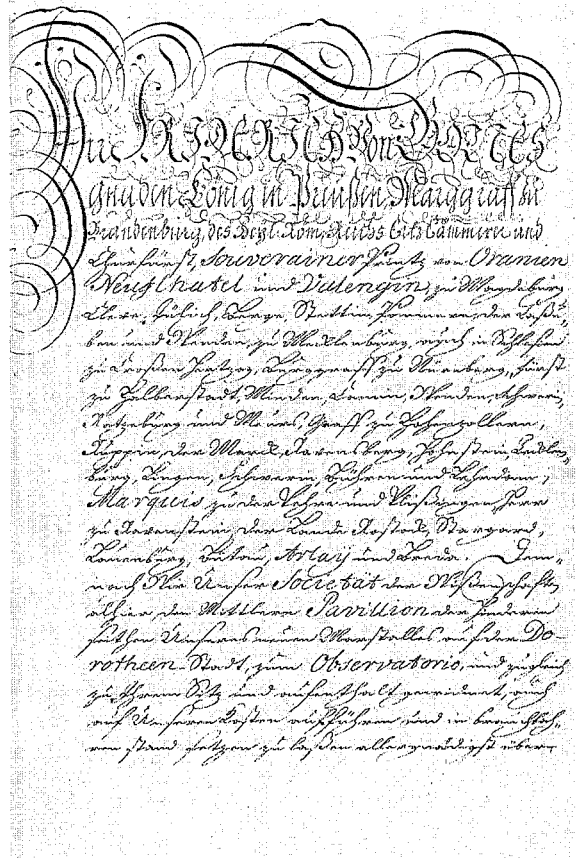 Wir FRIDERICH von GOTTES
gnaden König in Preüßen, Marggraff zu
Brandenburg, des Heyl. Röm. Reichs Ertz Cämmerer und
Churfürst, Souverainer Printz von Oranien
Neufchatel und Valengin, zu Magdeburg
Cleve, Jülich, Berge, Stettin, Pommern, der Caßu-
ben und Wenden, zu Mecklenburg, auch in Schlesien
zu Croßen Hertzog, Burggraff zu Nürnberg, Fürst
zu Halberstadt, Minden, Camin, Wenden, Schwerin,
Ratzeburg und Meurs, Graff zu Hohenzollern,
Ruppin, der Marck, Ravensberg, Hohnstein, Tecklen-
burg, Lingen, Schwerin, Bühren und Lehrdam,
Marquis zu der Vehre und Vlißingen, Herr
zu Ravenstein, der Lande Rostock, Stargard,
Lauenburg, Bütow, Arlaij und Breda. Dem-
nach Wir Unser Societät der Wißenschafften
alhier, den Mittlern Pavillion der hindern
seithen Unseres neuen Marstalles auf der Do-
rotheen-Stadt, zum Observatorio, und zugleich
zu Ihrem Sitz und aufenthalt gewidmet, auch
auf Unseren Kosten aufführen und in brauchbah-
ren stand setzen zu laßen allergnädigst über-